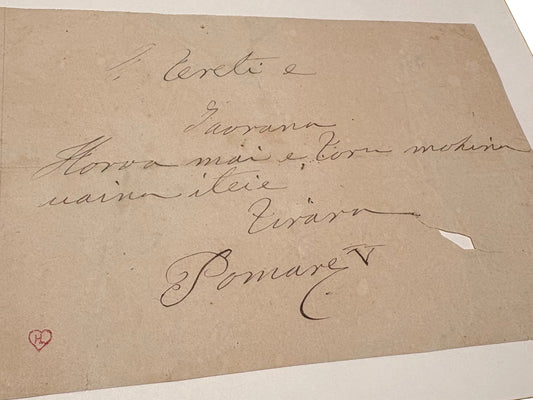 Tereti e
Iaorana
Horoa mai e toru mohina
uaina iteie
Tirara
Pomare V
HL